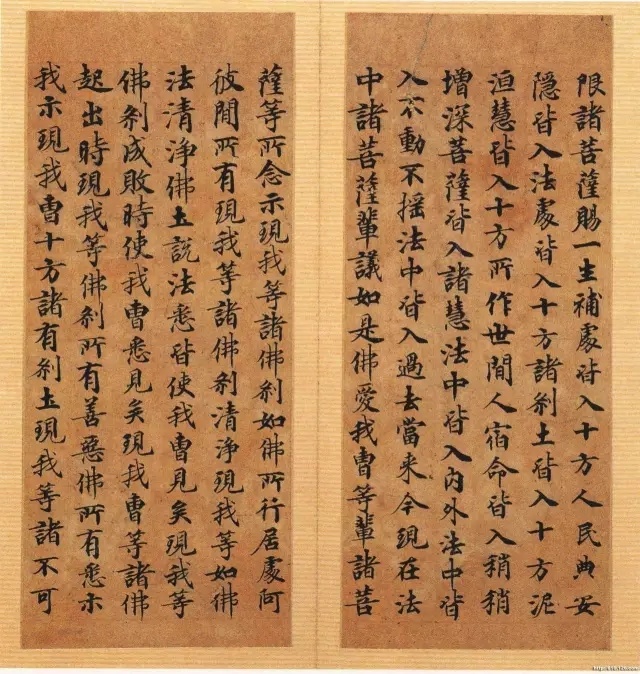 限諸菩薩賜一生補處皆入十方人民典安
隱皆入法處皆入十方諸剎土皆入十方泥
洹慧皆入十方所作世間人宿命皆入稍稍
增深菩薩皆入諸慧法中皆入內外法中皆
入不動不搖法中皆入過去當来今現在法
中諸菩薩輩議如是佛愛我曹等輩諸菩
薩等所念示現我等諸佛剎如佛所行居處何
彼間所有現我等諸佛剎清淨現我等如佛
法清淨佛土說法悉皆使我曹見矣現我等
佛剎成敗時使我曹悉見矣現我曹等諸佛
起出時現我等佛剎所有善惡佛所有悉示
我示現我曹十方諸有剎土現我等諸不可